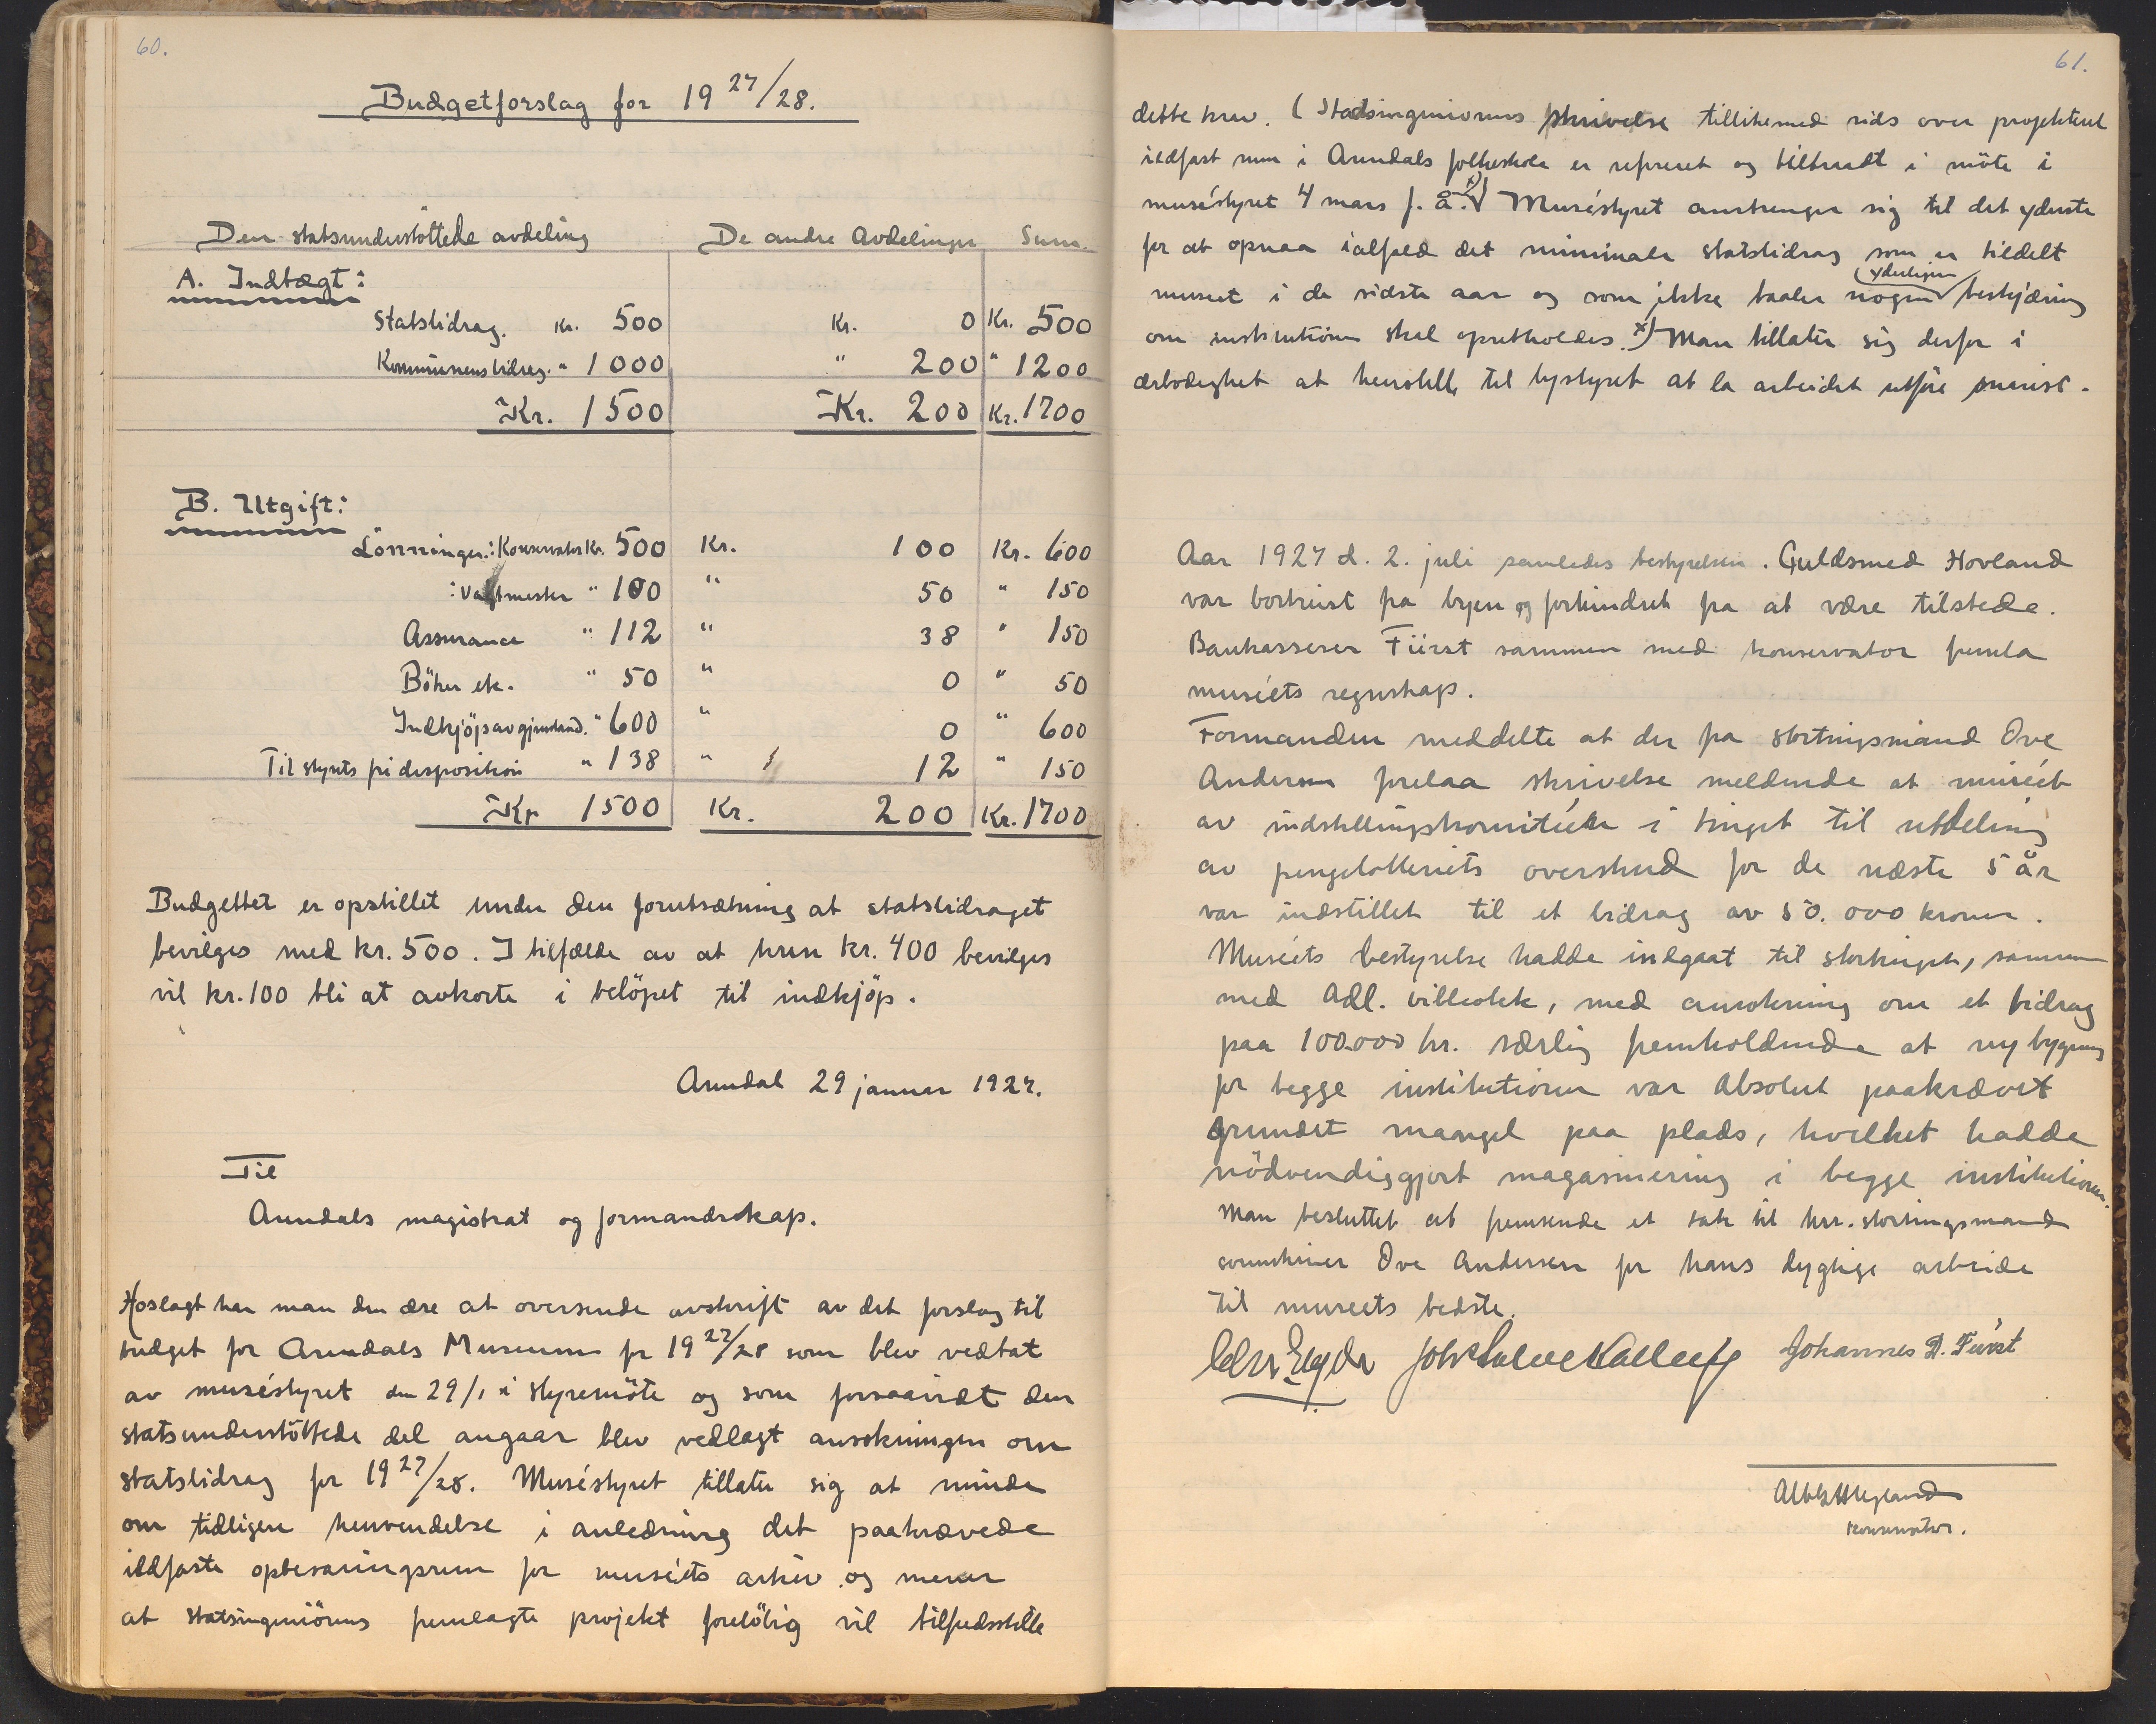 60.
Budgetforslag for 19 27/28.
Den statsunderstöttede avdeling De andre Avdelinger Sum.
A. Indtægt:
Statsbidrag. Kr. 500 Kr. 0 Kr. 500
Kommunens bidrag. " 1000 " 200 " 1200
Kr. 1500 Kr. 200 Kr. 1700
B. Utgift:
Lönninger: Konservator Kr. 500 Kr. 100 Kr. 600
: Vaktmester " 100 " 50 " 150
Assurance " 112 " 38 " 150
Böker etc. " 50 " 0 " 50
Indkjöp av gjenstand. " 600 " 0 " 600
Til styrets fri disposition " 138 " 12 " 150
Kr 1500 Kr. 200 Kr. 1700
Budgettet er opstillet under den forutsætning at statsbidraget
bevilges med kr. 500. I tilfælde av at kun kr. 400 bevilges
vil kr. 100 bli at avkorte i belöpet til indkjöp.
Arendal 29 januar 1927.
Til
Arendals magistrat og formandskap.
Hoslagt har man den ære at oversende avskrift av det forslag til
budget for Arendals Museum for 19 27/28 som blev vedtat
av muséstyret den 29/1 i styremöte og som forsaavidt den
statsunderstöttede del angaar blev vedlagt ansökningen om
statsbidrag for 19 27/28. Muséstyret tillater sig at minde
om tidligere henvendelse i anledning det paakrævede
ildfaste opbevaringsrum for muséets arkiv og mener
at stadsingeniörens fremlagte projekt forelöbig vil tilfredsstille
61.
dette krav. (Stadsingeniörens skrivelse tillikemed rids over projektert
ildfast rum i Arendals folkeskole er refereret og tiltraadt i möte i
muséstyret 4 mars f. å. x) Muséstyret anstrenger sig til det yderste
for at opnaa ialfald det minimale statsbidrag som er tildelt
museet i de sidste aar og som ikke taaler nogen yderligere beskjæring
om institutionen skal opretholdes. x) Man tillater sig derfor i
ærbödighet at henstille til bystyret at la arbeidet utföre snarest.
Aar 1927 d. 2. juli samledes bestyrelsen. Guldsmed Hovland
var bortreist fra byen og forhindret fra at være tilstede.
Bankkasserer Fürst sammen med konservator fremla
muséets regnskap.
Formanden meddelte at der fra stortingsmand Ove
Andersen forelaa skrivelse meldende at muséet
av indstillingskomitéen i tinget til utdeling
av pengelotteriets overskud for de næste 5 år
var indstillet til et bidrag av 50.000 kroner.
Muséets bestyrelse hadde indgaat til stortinget, sammen
med Adl. bibliotek, med ansökning om et bidrag
paa 100.000 kr. særlig fremholdende at ny bygning
for begge institutioner var absolut paakrævet
grundet mangel paa plads, hvilket hadde
nödvendiggjort magasinering i begge institutioner.
Man besluttet at fremsende et takk til hr. stortingsmand
sorenskriver Ove Andersen for hans dygtige arbeide
til museets bedste.
Johannes D. Fürst
konservator.